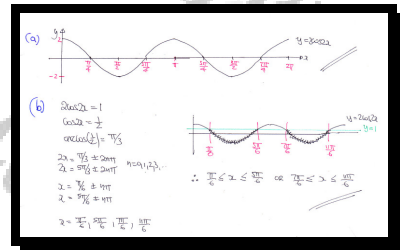 (a)
y
2
-2
π/4 π/2 3π/4 π 5π/4 3π/2 7π/4 2π x
y=2cos2x
(b)
2cos2x = 1
cos2x = 1/2
arccos(1/2) = π/3
2x = π/3 ± 2nπ
2x = 5π/3 ± 2nπ
n=0,1,2,3,...
x = π/6 ± nπ
x = 5π/6 ± nπ
x = π/6, 5π/6, 7π/6, 11π/6
y=2cos2x
y=1
π/6 5π/6 7π/6 11π/6
∴ π/6 ≤ x ≤ 5π/6 OR 7π/6 ≤ x ≤ 11π/6